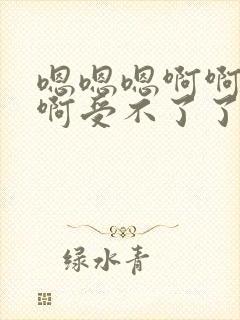 嗯嗯嗯啊啊
啊受不了了
绿水青